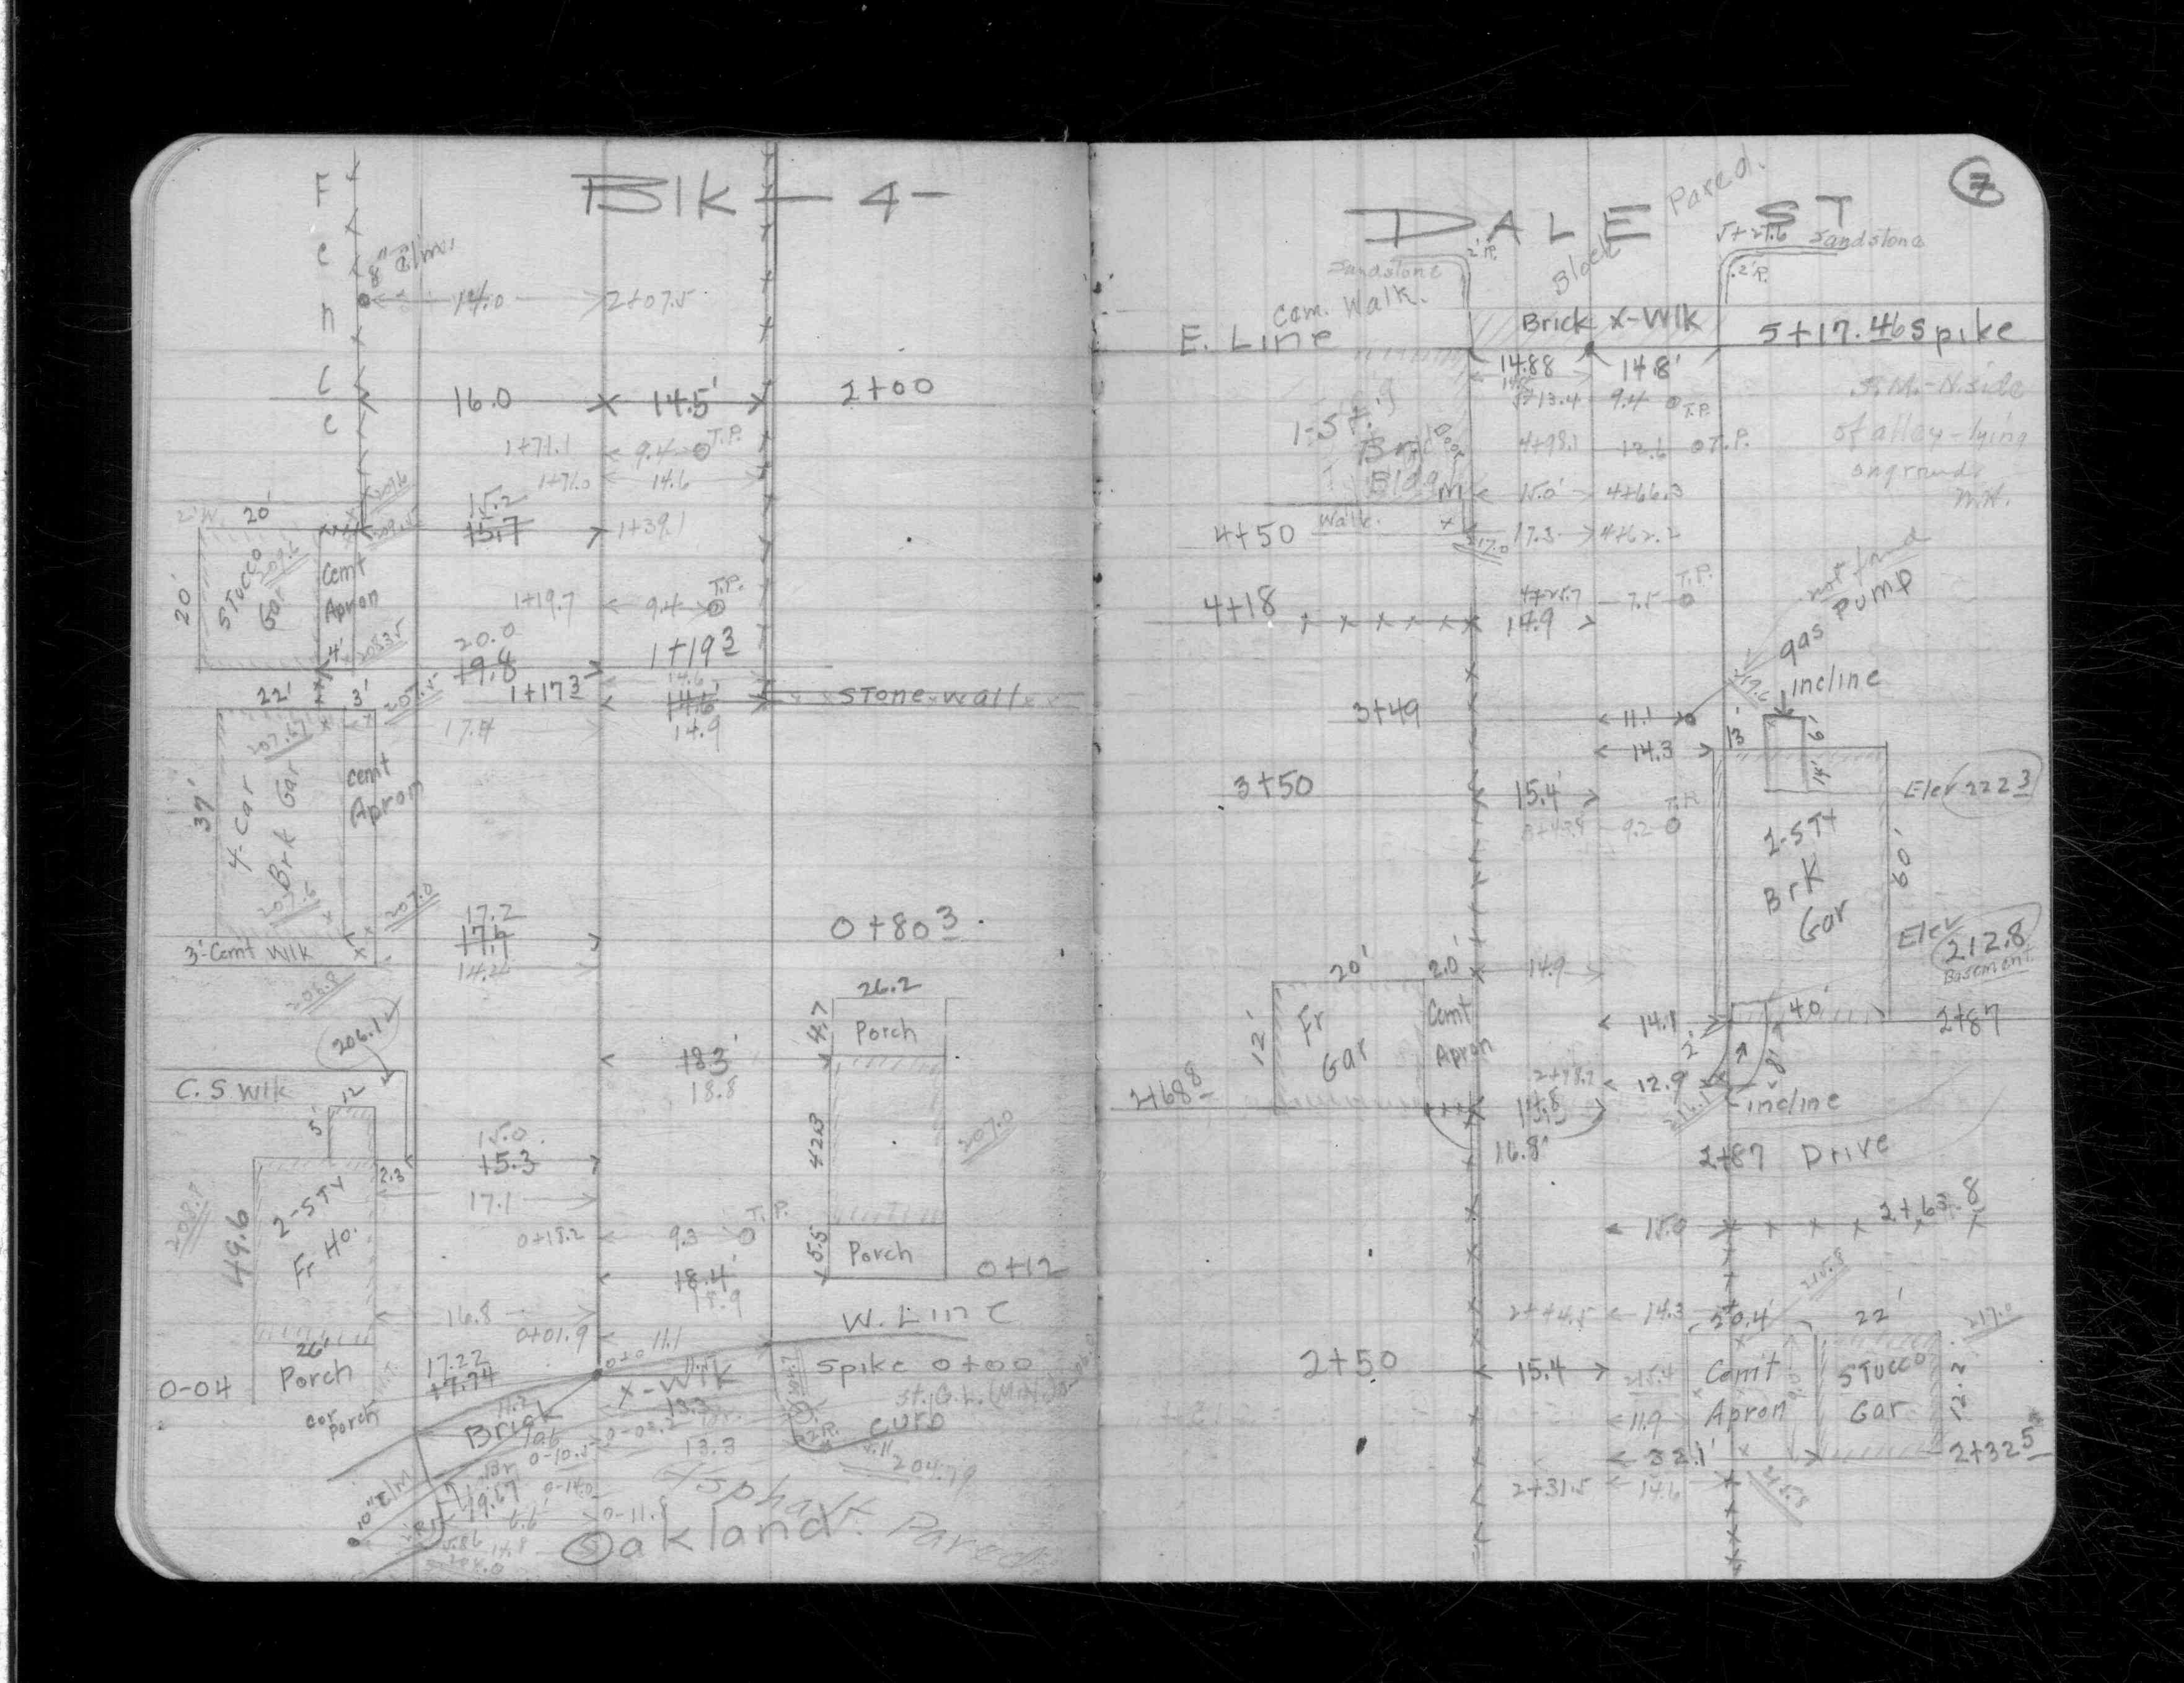 Blk - 4 -
Fence
8" Elm
14.0 2+07.5
16.0 14.5' 2+00
1+71.1 9.4 T.P.
1+71.0 14.6
20' 15.2
15.7 1+39.1
20' Stucco Gar
209.6
Cemt Apron
4'
1+19.7 9.4 T.P.
20.0
19.8 1+19 3
22' 3' 1+17 3 14.6 Stone wall
17.4 14.9
37' 4-Car Brk Gar
207.67
Cemt Apron
207.0
17.2
17.7 0+80 3
3' Cemt Wlk 14.2
206.8
26.2
206.1 4.7 Porch
18.3'
18.8
C. S Wlk
12
5' 42.3 207.0
15.0
15.3
2.3
17.1
49.6 2-STY Fr Ho.
0+18.2 9.3 T.P.
5.5 Porch
18.4' 0+12
18.9
16.8 W. Line
0+01.9 11.1
26' 17.22 0+0
0-04 Porch 17.74 X-Wlk Spike 0+00
cor porch Brick 13.3 curb
13.3
10" Elm 19.67 204.79
Oakland Asphalt Paved
7
DALE ST
Block Paved.
5+27.6 Sandstone
Sandstone 2'R. 2'R.
Cem. Walk.
Brick X-Wlk
E. Line 5+17.46 Spike
14.88 14.8'
5+13.4 9.4 T.P.
B.M.-N. side
of alley-lying
on ground
M.H.
4+98.1 12.6 T.P.
1-St.
Bldg
15.0' 4+66.3
4+50 Walk. 17.3 4+62.2
217.0
not found
gas pump
4+18 4+25.7 7.5 T.P.
14.9
incline
3+49 11.1
14.3 13' 6'
14'
3+50 15.4' Elev 222 3
9.2 T.P.
2-STY Brk Gar
60'
Elev 212.8
Basement.
20' 2.0' 14.9
12' Fr Gar Cemt Apron
14.1 40' 2+87
2' 8'
2+68 8 12.9
incline
16.8'
2+87 Drive
18.0 2+63.8
215.8
2+44.5 14.3 20.4' 22' 217.0
2+50 15.4 215.4 Cemt Apron Stucco Gar 12.2
11.9
32.1' 2+32 5
2+31.5 14.6 215.8